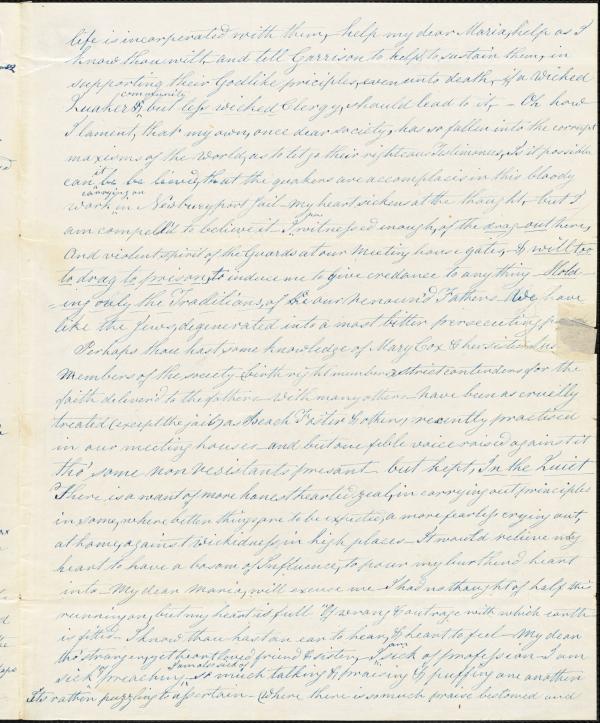 life is incorporated with them, help my dear Maria, help as I
know thou wilt, and tell Garrison to help to sustain them, in
supporting their Godlike priciples, even unto death, if a wicked
community
Quaker & but less wicked Clergy, should lead to it, - Oh how
I lament, that my own, once dear society, has so fallen into the corrupt
maxisms of the world, as to let go their righteous Testimonies, Is it possible
it
can be be lieved, that the quakers are accomplices in this bloody
carrying on
work in Newburyport Jail - my heart sickens at the thought, but I
am compell'd to believe it - I witnessed enough, of the drag-out there,
And violent spirit of the Guards at our Meeting house gate, & will too
to drag to prison, to induce me to give credance to any thing - Hold-
-ing only the Traditions, of our renound Fathers We have
like the Jews, degenerated into a most bitter persecuting
Perhaps thou hast some knowledge of Mary Cox & her sister
Members of the society birth right members strict contenders for the
faith deliver'd to the fathers - with many others - have been as cruelly
treated (except the jail) as Beach Foster & others, recently practised
in our meeting houses - and but one feble voice raised against it
tho' some non resistants presant - but kept, In the Quiet
There is a want of more honest hearted zeal, in carrying out principles
in some, where better things are to be expected, a more fearless crying out,
at home, against wickedness, in high places - It would relieve my
heart to have a bosom of Influence, to pour my burthend heart
into - My dear Maria, will excuse me I had no thought of half this
running on, but my heart is full Of wrong & outrage with which earth
is fill'd - I know thou hast an ear to hear, & heart to feel - My dear
am
tho' stranger, yet heart loved friend & sister, I sick of profession I am
I am also sick of
sick of preaching so much talking & praising & puffing one another
Its rather puzzling to assertain - Where there is so much praise bestowed and